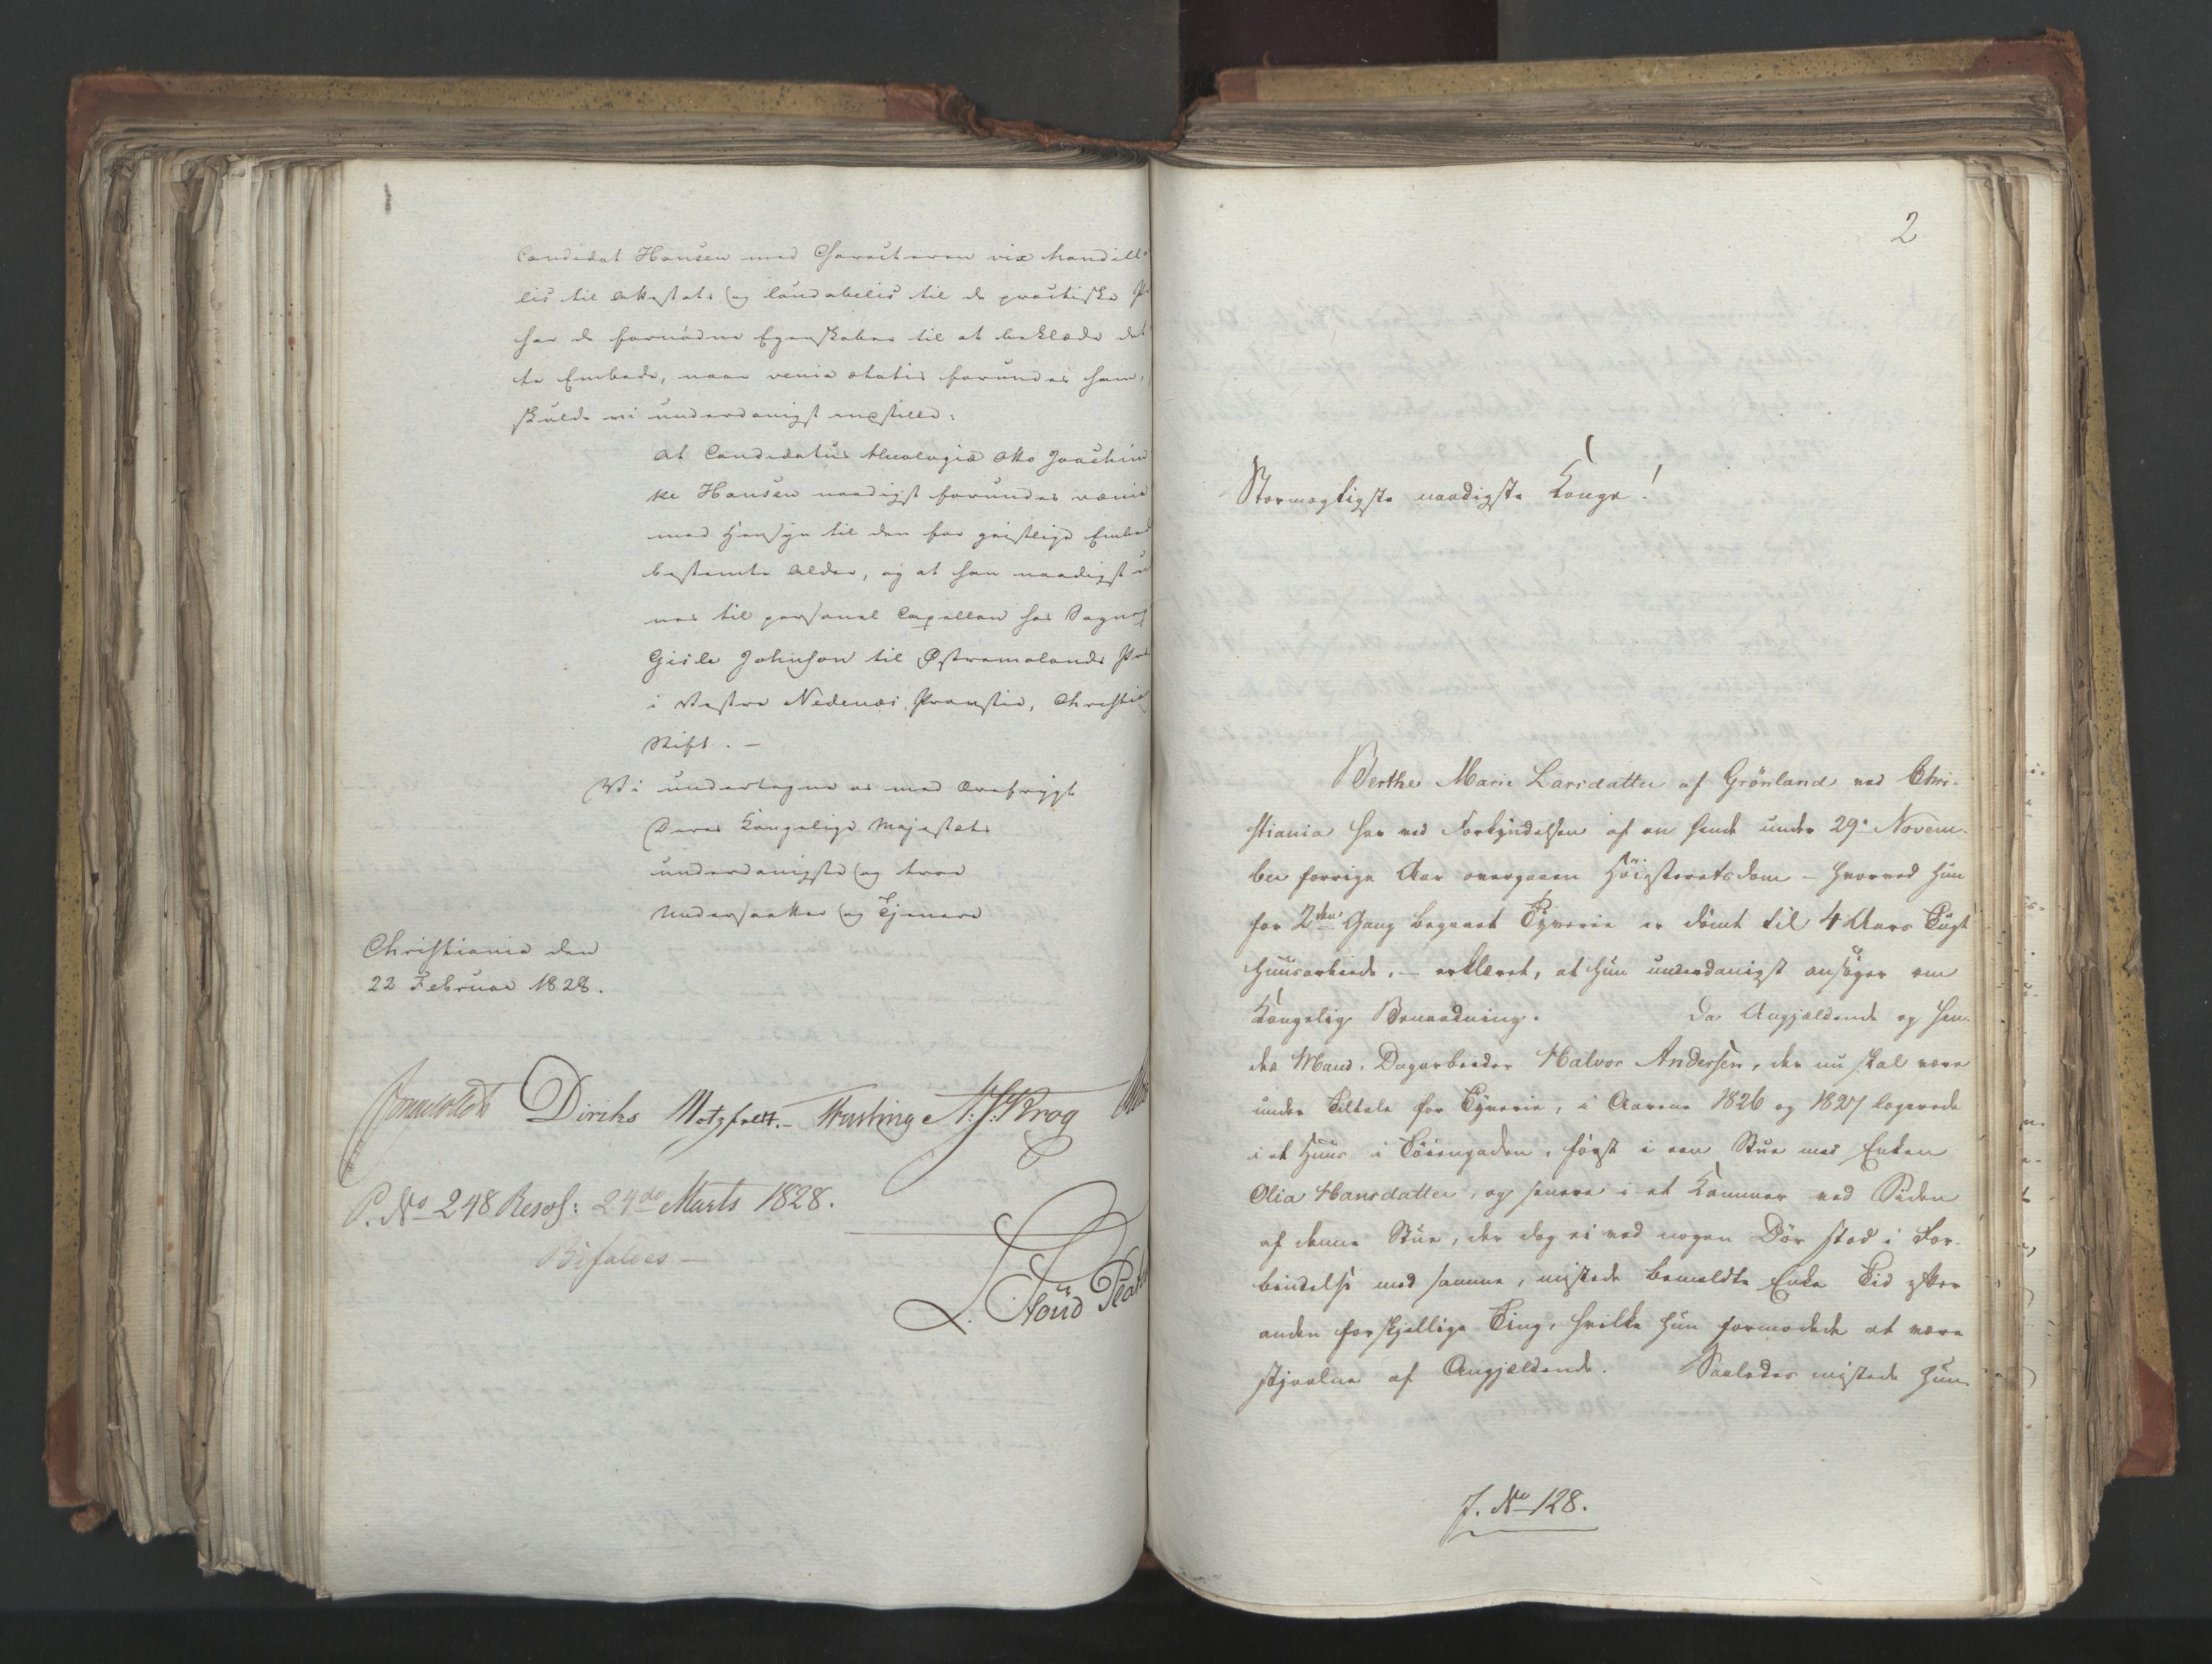 Candidat Hansen med Charakteren vix haudill
lis til Attestats og laudabelis til de practiske
har de fornødne Egenskaber til at beklæde det
te Embede, naar venia ætatis forundes ham,
skulde vi underdanigst indstille:
At Candidatus theologiæ Otto Joachim
ke Hansen naadigst forundes venia
med Hensyn til den for geistlige Embed
bestemte Alder, og at han naadigst u
nes til personel Capellan hos Sogne
Gisle Johnson til Østremolands Præ
i Vestre Nedenæs Provstie, Christia
Stift. –
Vi undertegne os med Ærefrygt
Deres Kongelige Majestæts
underdanigste og troe
Undersaatter og Tjenere
Christiania den
22 Februar 1828.
Diriks Motzfeldt. – Fasting N: J. Krog
P. No 248 Resol: 24de Marts 1828.
Bifaldes –
L. Roüd
2
Stormægtigste naadigste Konge!
Berthe Marie Larsdatter af Grönland ved Chri-
stiania har ved Forkyndelsen af en hende under 29. Novem-
ber forrige Aar overgaaen Höiesteretsdom – hvorved hun
for 2den Gang begaaet Tyverie er dömt til 4 Aars Tugt
huusarbeide, – erklæret, at hun underdanigst ansöger om
Kongelig Benaadning. Da Angjældende og hen-
des Mand, Dagarbeider Halvor Andersen, der nu skal være
under Tiltale for Tyverie, i Aarene 1826 og 1827 logerede
i et Huus i Töiengaden, först i een Stue med Enken
Olia Hansdatter, og senere i et Kammer ved Siden
af denne Stue, der dog ei ved nogen Dör stod i For-
bindelse med samme, mistede bemeldte Enke Tid efter
anden forskjellige Ting, hvilke hun formodede at være
stjaalne af Angjældende. Saaledes mistede hun
J. No 128.